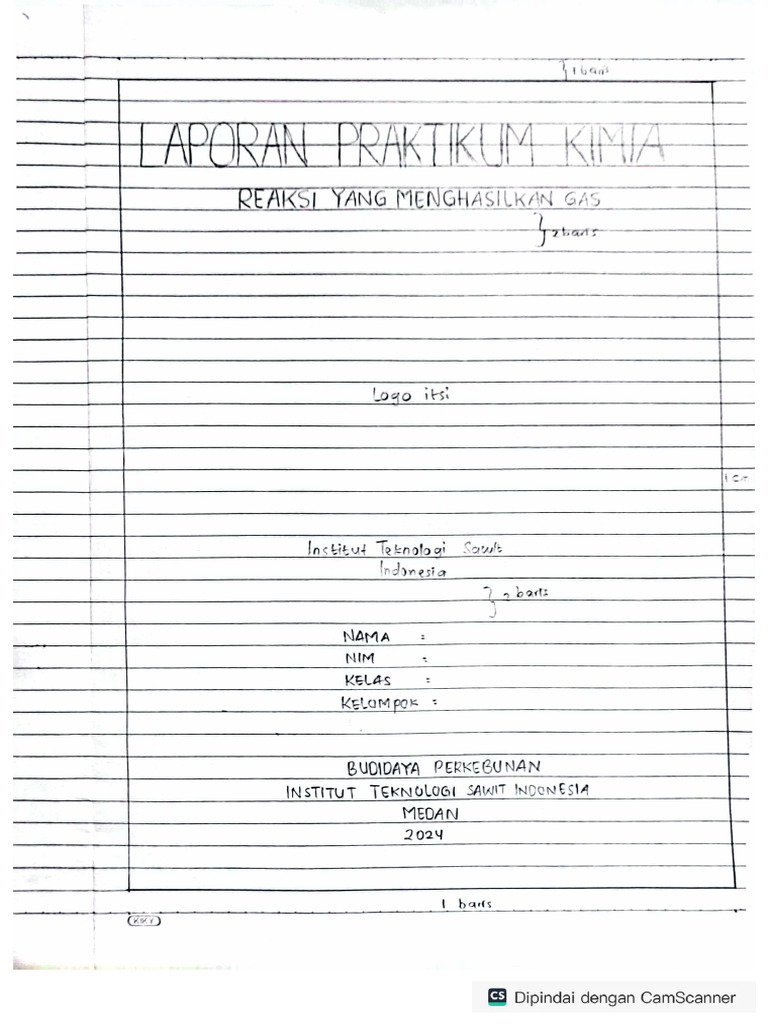 } 1 baris
LAPORAN PRAKTIKUM KIMIA
REAKSI YANG MENGHASILKAN GAS
} 2 baris
Logo itsi
1 cm
Institut Teknologi Sawit
Indonesia
} 2 baris
NAMA :
NIM :
KELAS :
KELOMPOK :
BUDIDAYA PERKEBUNAN
INSTITUT TEKNOLOGI SAWIT INDONESIA
MEDAN
2024
1 baris
KIKY
CS Dipindai dengan CamScanner